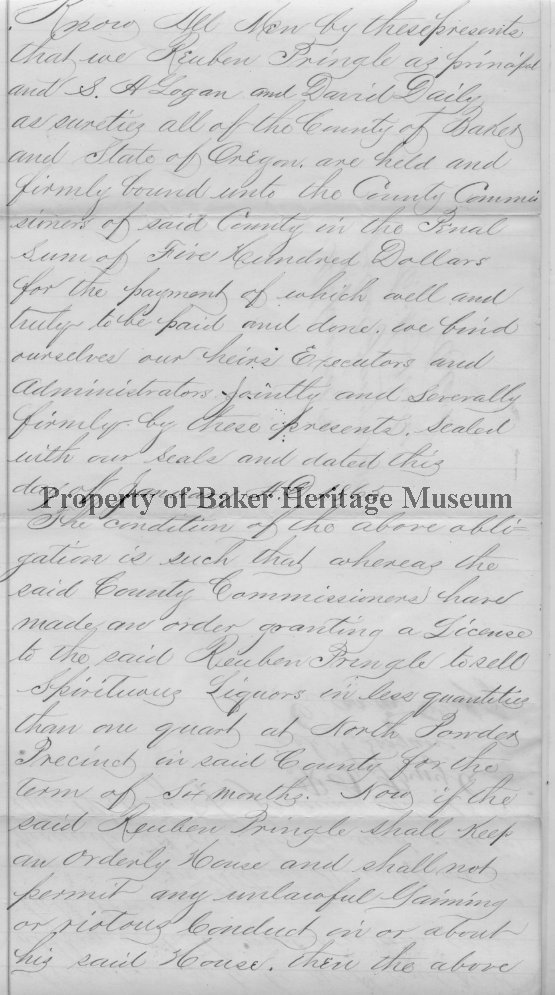 Know All Men by these presents
that we Reuben Pringle as principal
and S. A Logan and David Daily
as sureties all of the County of Baker
and State of Oregon. are held and
firmly bound unto the County Commis
sioners of said County in the Penal
Sum of Five Hundred Dollars
for the payment of which well and
truly to be paid and done. we bind
ourselves our heirs Executors and
Administrators Jointly and Severally
firmly by these presents. Sealed
with our Seals and dated this
day of January A.D.
Property of Baker Heritage Museum
The condition of the above obli=
gation is such that whereas the
said County Commissioners have
made an order granting a License
to the said Reuben Pringle to sell
Spirituous Liquors in less quantities
than one quart at North Powder
Precinct in said County for the
term of Six months. Now if the
said Reuben Pringle shall Keep
an Orderly House and shall not
permit any unlawful Gaiming
or riotous Conduct in or about
his said House. then the above